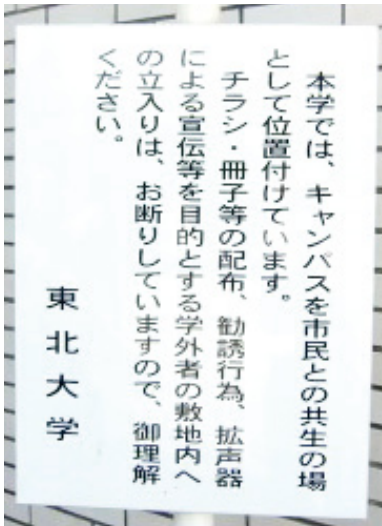 本学では、キャンパスを市民との共生の場
として位置付けています。
チラシ・冊子等の配布、勧誘行為、拡声器
による宣伝等を目的とする学外者の敷地内へ
の立入りは、お断りしていますので、御理解
ください。
東北大学